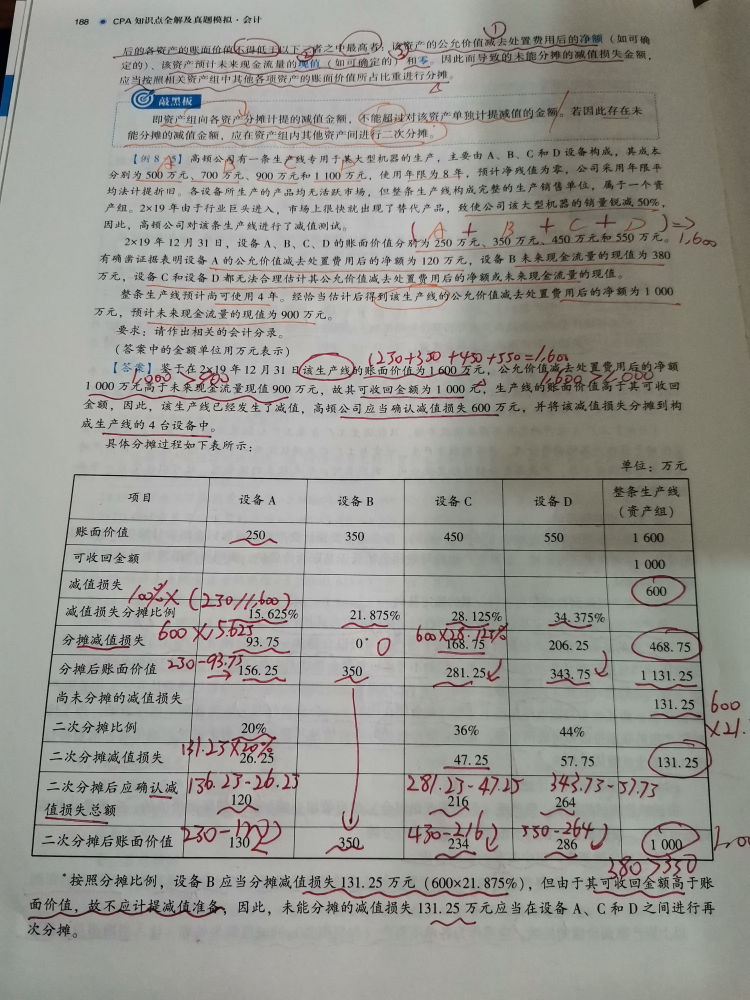 188 CPA 知识点全解及真题模拟·会计
①
后的各资产的账面价值不得低于以下三者之中最高者:该资产的公允价值减去处置费用后的净额(如可确
定的)、该资产预计未来现金流量的现值(如可确定的)和零。因此而导致的未能分摊的减值损失金额,
应当按照相关资产组中其他各项资产的账面价值所占比重进行分摊。
敲黑板
即资产组向各资产分摊计提的减值金额,不能超过对该资产单独计提减值的金额。若因此存在未
能分摊的减值金额,应在资产组内其他资产间进行二次分摊。
【例8-5】高顿公司有一条生产线专用于某大型机器的生产,主要由 A、B、C 和 D 设备构成,其成本
分别为 500 万元、700 万元、900 万元和 1 100 万元,使用年限为 8 年,预计净残值为零,公司采用年限平
均法计提折旧。各设备所生产的产品均无活跃市场,但整条生产线构成完整的生产销售单位,属于一个资
产组。2×19 年由于行业巨头进入,市场上很快就出现了替代产品,致使公司该大型机器的销量锐减 50%,
因此,高顿公司对该条生产线进行了减值测试。
(A + B + C + D) ⇒
1,600
2×19 年 12 月 31 日,设备 A、B、C、D 的账面价值分别为 250 万元、350 万元、450 万元和 550 万元。
有确凿证据表明设备 A 的公允价值减去处置费用后的净额为 120 万元,设备 B 未来现金流量的现值为 380
万元,设备 C 和设备 D 都无法合理估计其公允价值减去处置费用后的净额或未来现金流量的现值。
整条生产线预计尚可使用 4 年。经恰当估计后得到该生产线的公允价值减去处置费用后的净额为 1 000
万元,预计未来现金流量的现值为 900 万元。
要求:请作出相关的会计分录。
(答案中的金额单位用万元表示)
(250+350+450+550=1,600
【答案】鉴于在 2×19 年 12 月 31 日该生产线的账面价值为 1 600 万元,公允价值减去处置费用后的净额
1,000>900
1,600>1,000
1 000 万元高于未来现金流量现值 900 万元,故其可收回金额为 1 000 元,生产线的账面价值高于其可收回
金额,因此,该生产线已经发生了减值,高顿公司应当确认减值损失 600 万元,并将该减值损失分摊到构
成生产线的 4 台设备中。
具体分摊过程如下表所示:
单位:万元
项目 设备 A 设备 B 设备 C 设备 D 整条生产线
(资产组)
账面价值 250 350 450 550 1 600
可收回金额 1 000
减值损失 600
100%×(250/1,600)
减值损失分摊比例 15.625% 21.875% 28.125% 34.375%
600×15.625 600×28.125%
分摊减值损失 93.75 0* 0 168.75 206.25 468.75
250-93.75
分摊后账面价值 156.25 350 281.25 343.75 1 131.25
尚未分摊的减值损失 131.25 600
×21.
二次分摊比例 20% 36% 44%
131.25×20%
二次分摊减值损失 26.25 47.25 57.75 131.25
二次分摊后应确认减 156.25-26.25 281.25-47.25 343.75-57.75
值损失总额 120 216 264
250-120 450-216 550-264
二次分摊后账面价值 130 350 234 286 1 000
380>350
*按照分摊比例,设备 B 应当分摊减值损失 131.25 万元(600×21.875%),但由于其可收回金额高于账
面价值,故不应计提减值准备,因此,未能分摊的减值损失 131.25 万元应当在设备 A、C 和 D 之间进行再
次分摊。